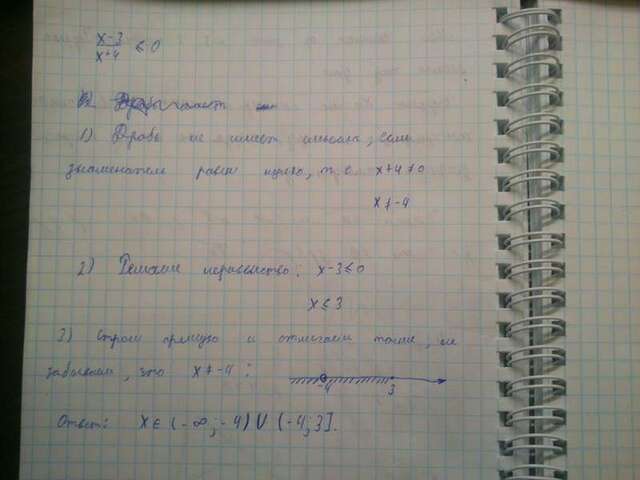 x-3/x+4 ≤ 0
1) Дробь не имеет смысла, если
знаменатель равен нулю, т.е. x+4≠0
x≠-4
2) Решаем неравенство: x-3≤0
x≤3
3) Строим прямую и отмечаем точки, не
забываем, что x≠-4:
-4 3
Ответ: x∈(-∞;-4)∪(-4;3].